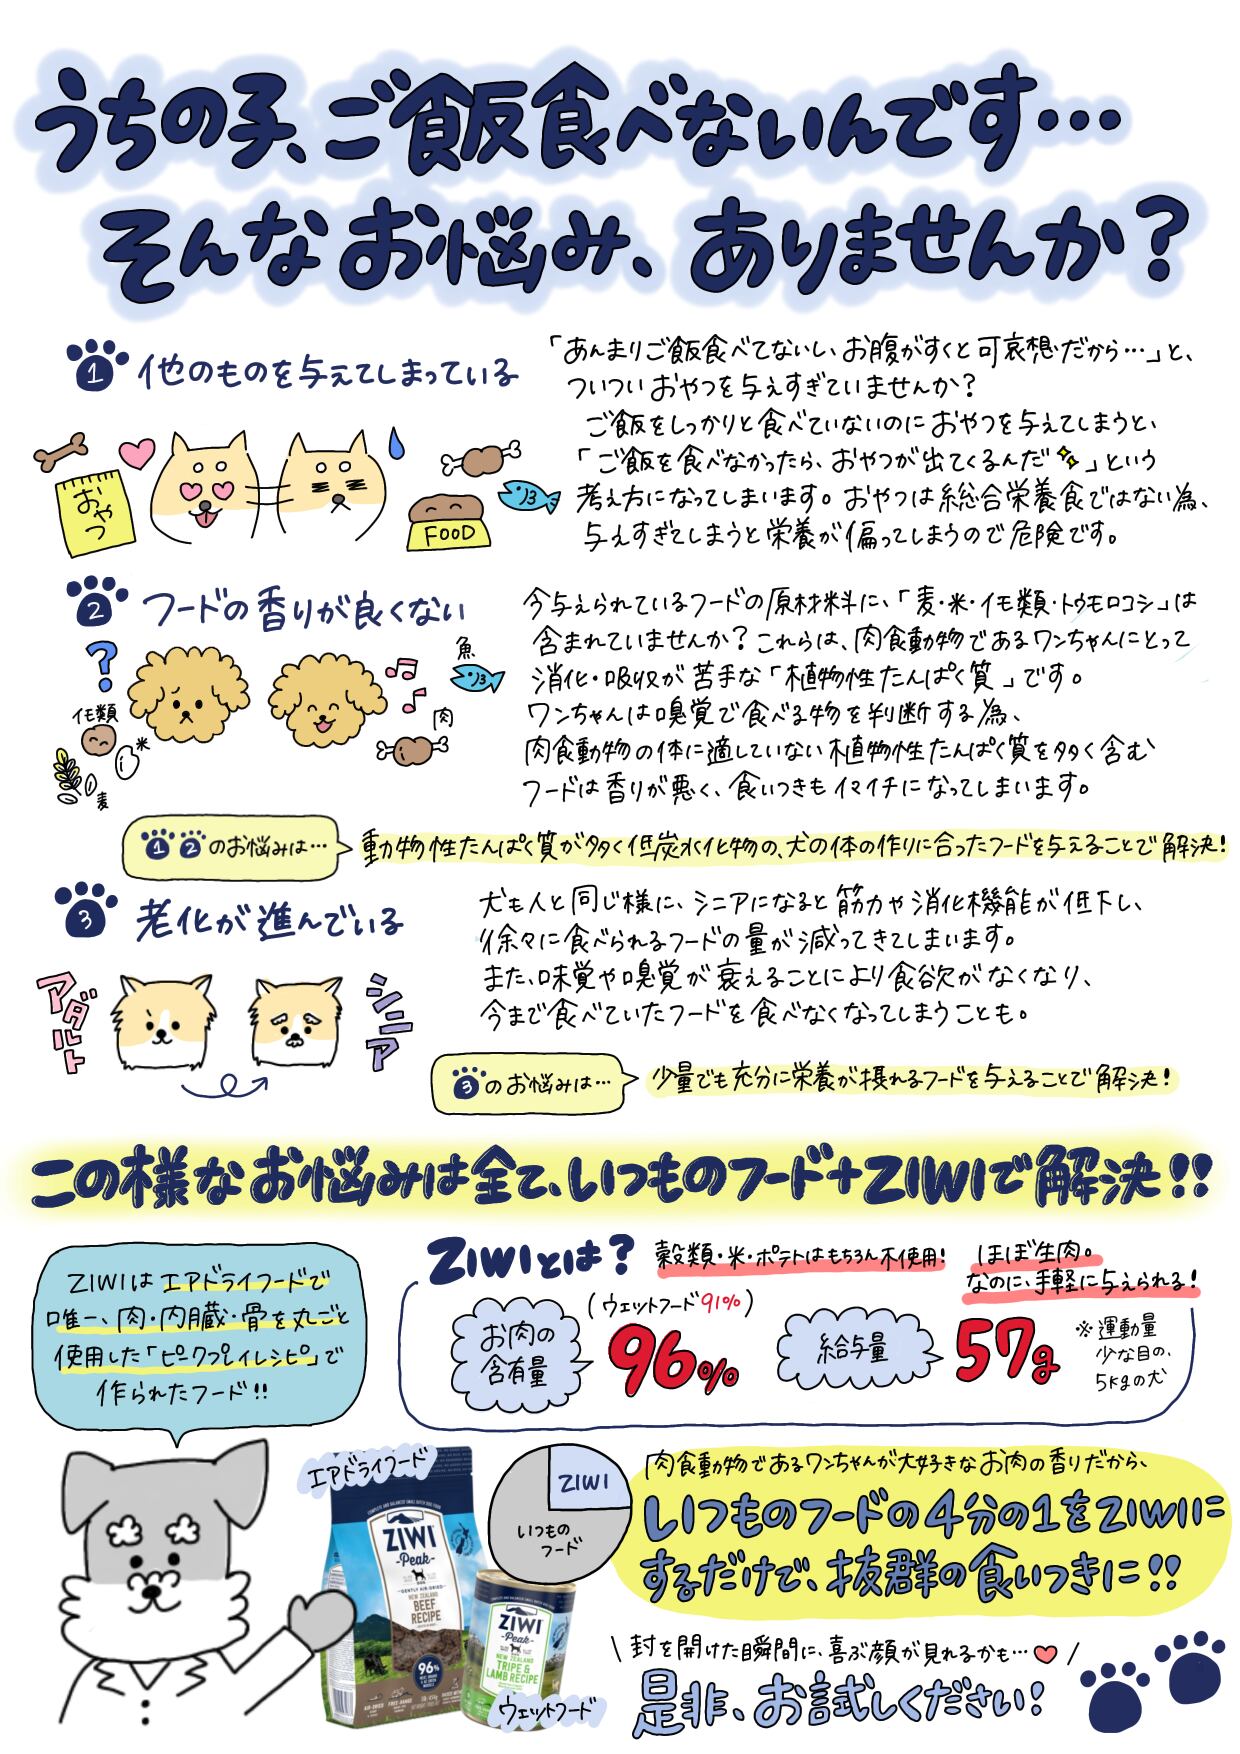 うちの子、ご飯食べないんです…
そんなお悩み、ありませんか？
1 他のものを与えてしまっている
「あんまりご飯食べてないし、お腹がすくと可哀想だから…」と、
ついついおやつを与えすぎていませんか？
ご飯をしっかりと食べていないのにおやつを与えてしまうと、
「ご飯を食べなかったら、おやつが出てくるんだ」という
考え方になってしまいます。おやつは総合栄養食ではない為、
与えすぎてしまうと栄養が偏ってしまうので危険です。
おやつ
FOOD
2 フードの香りが良くない
今与えられているフードの原材料に、「麦・米・イモ類・トウモロコシ」は
含まれていませんか？これらは、肉食動物であるワンちゃんにとって
消化・吸収が苦手な「植物性たんぱく質」です。
ワンちゃんは嗅覚で食べる物を判断する為、
肉食動物の体に適していない植物性たんぱく質を多く含む
フードは香りが悪く、食いつきもイマイチになってしまいます。
?
イモ類
米
麦
魚
肉
1 2 のお悩みは…
動物性たんぱく質が多く低炭水化物の、犬の体の作りに合ったフードを与えることで解決！
3 老化が進んでいる
犬も人と同じ様に、シニアになると筋力や消化機能が低下し、
徐々に食べられるフードの量が減ってきてしまいます。
また、味覚や嗅覚が衰えることにより食欲がなくなり、
今まで食べていたフードを食べなくなってしまうことも。
アダルト
シニア
3 のお悩みは…
少量でも充分に栄養が摂れるフードを与えることで解決！
この様なお悩みは全て、いつものフード+ZIWIで解決！！
ZIWIは エアドライフードで
唯一、肉・内臓・骨を丸ごと
使用した「ピークプレイレシピ」で
作られたフード！！
ZIWIとは？
穀類・米・ポテトはもちろん不使用！
ほぼ生肉。
なのに、手軽に与えられる！
お肉の
含有量
(ウェットフード91%)
96%
給与量
57g
※運動量
少な目の、
5kgの犬
エアドライフード
ZIWI
Peak
GENTLY AIR-DRIED
NEW ZEALAND
BEEF
RECIPE
96%
ZIWI
Peak
NEW ZEALAND
TRIPE &
LAMB RECIPE
ウェットフード
ZIWI
いつもの
フード
肉食動物であるワンちゃんが大好きなお肉の香りだから、
いつものフードの4分の1をZIWIに
するだけで、抜群の食いつきに！！
\ 封を開けた瞬間に、喜ぶ顔が見れるかも…♥ /
是非、お試しください！